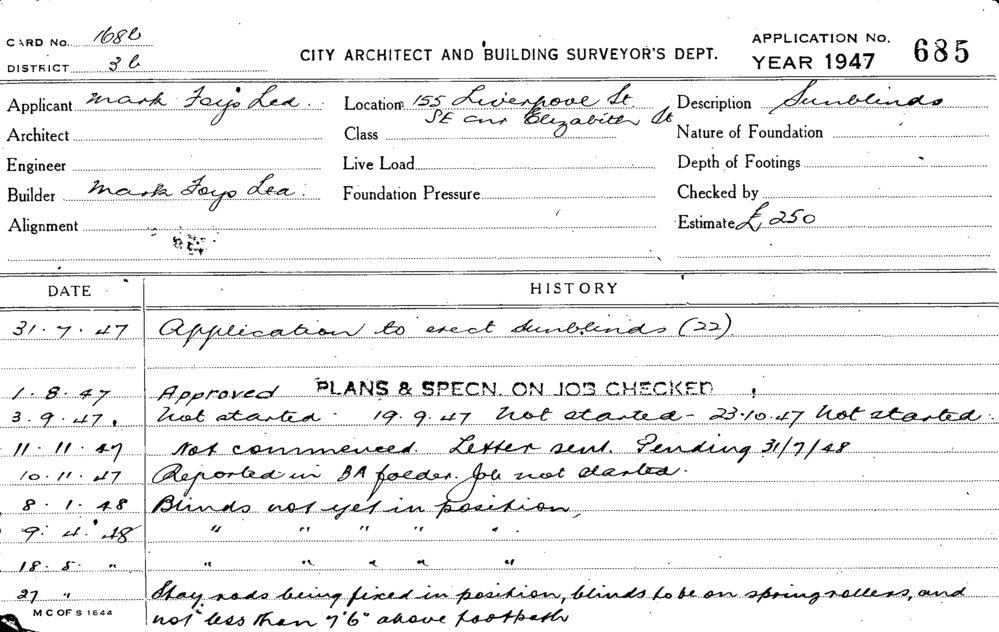 CARD No. 168b
DISTRICT 3b
CITY ARCHITECT AND BUILDING SURVEYOR'S DEPT.
APPLICATION NO. 685
YEAR 1947
Applicant Mark Foys Ltd. Location 155 Liverpool St. Description Sunblinds
SE cnr Elizabeth St
Architect Class Nature of Foundation
Engineer Live Load Depth of Footings
Builder Mark Foys Ltd. Foundation Pressure Checked by
Alignment Estimate £250
DATE HISTORY
31.7.47 Application to erect sunblinds (22)
1.8.47 Approved PLANS & SPECN. ON JOB CHECKED
3.9.47. Not started. 19.9.47 Not started - 23.10.47 Not started.
11.11.47 Not commenced. Letter sent. Pending 31/7/48
10.11.47 Reported in BA folder. Job not started.
8.1.48 Blinds not yet in position,
9.4.48 " " " " "
18.5. " " " " " "
27 " Stay rods being fixed in position, blinds to be on spring rollers, and
MC OF S 1644 not less than 7'6" above footpath